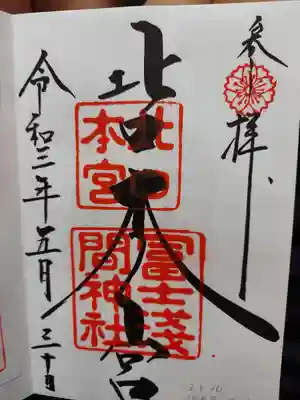 奉拝
北口本宮
北口本宮
冨士淺間神社
令和三年五月三十日